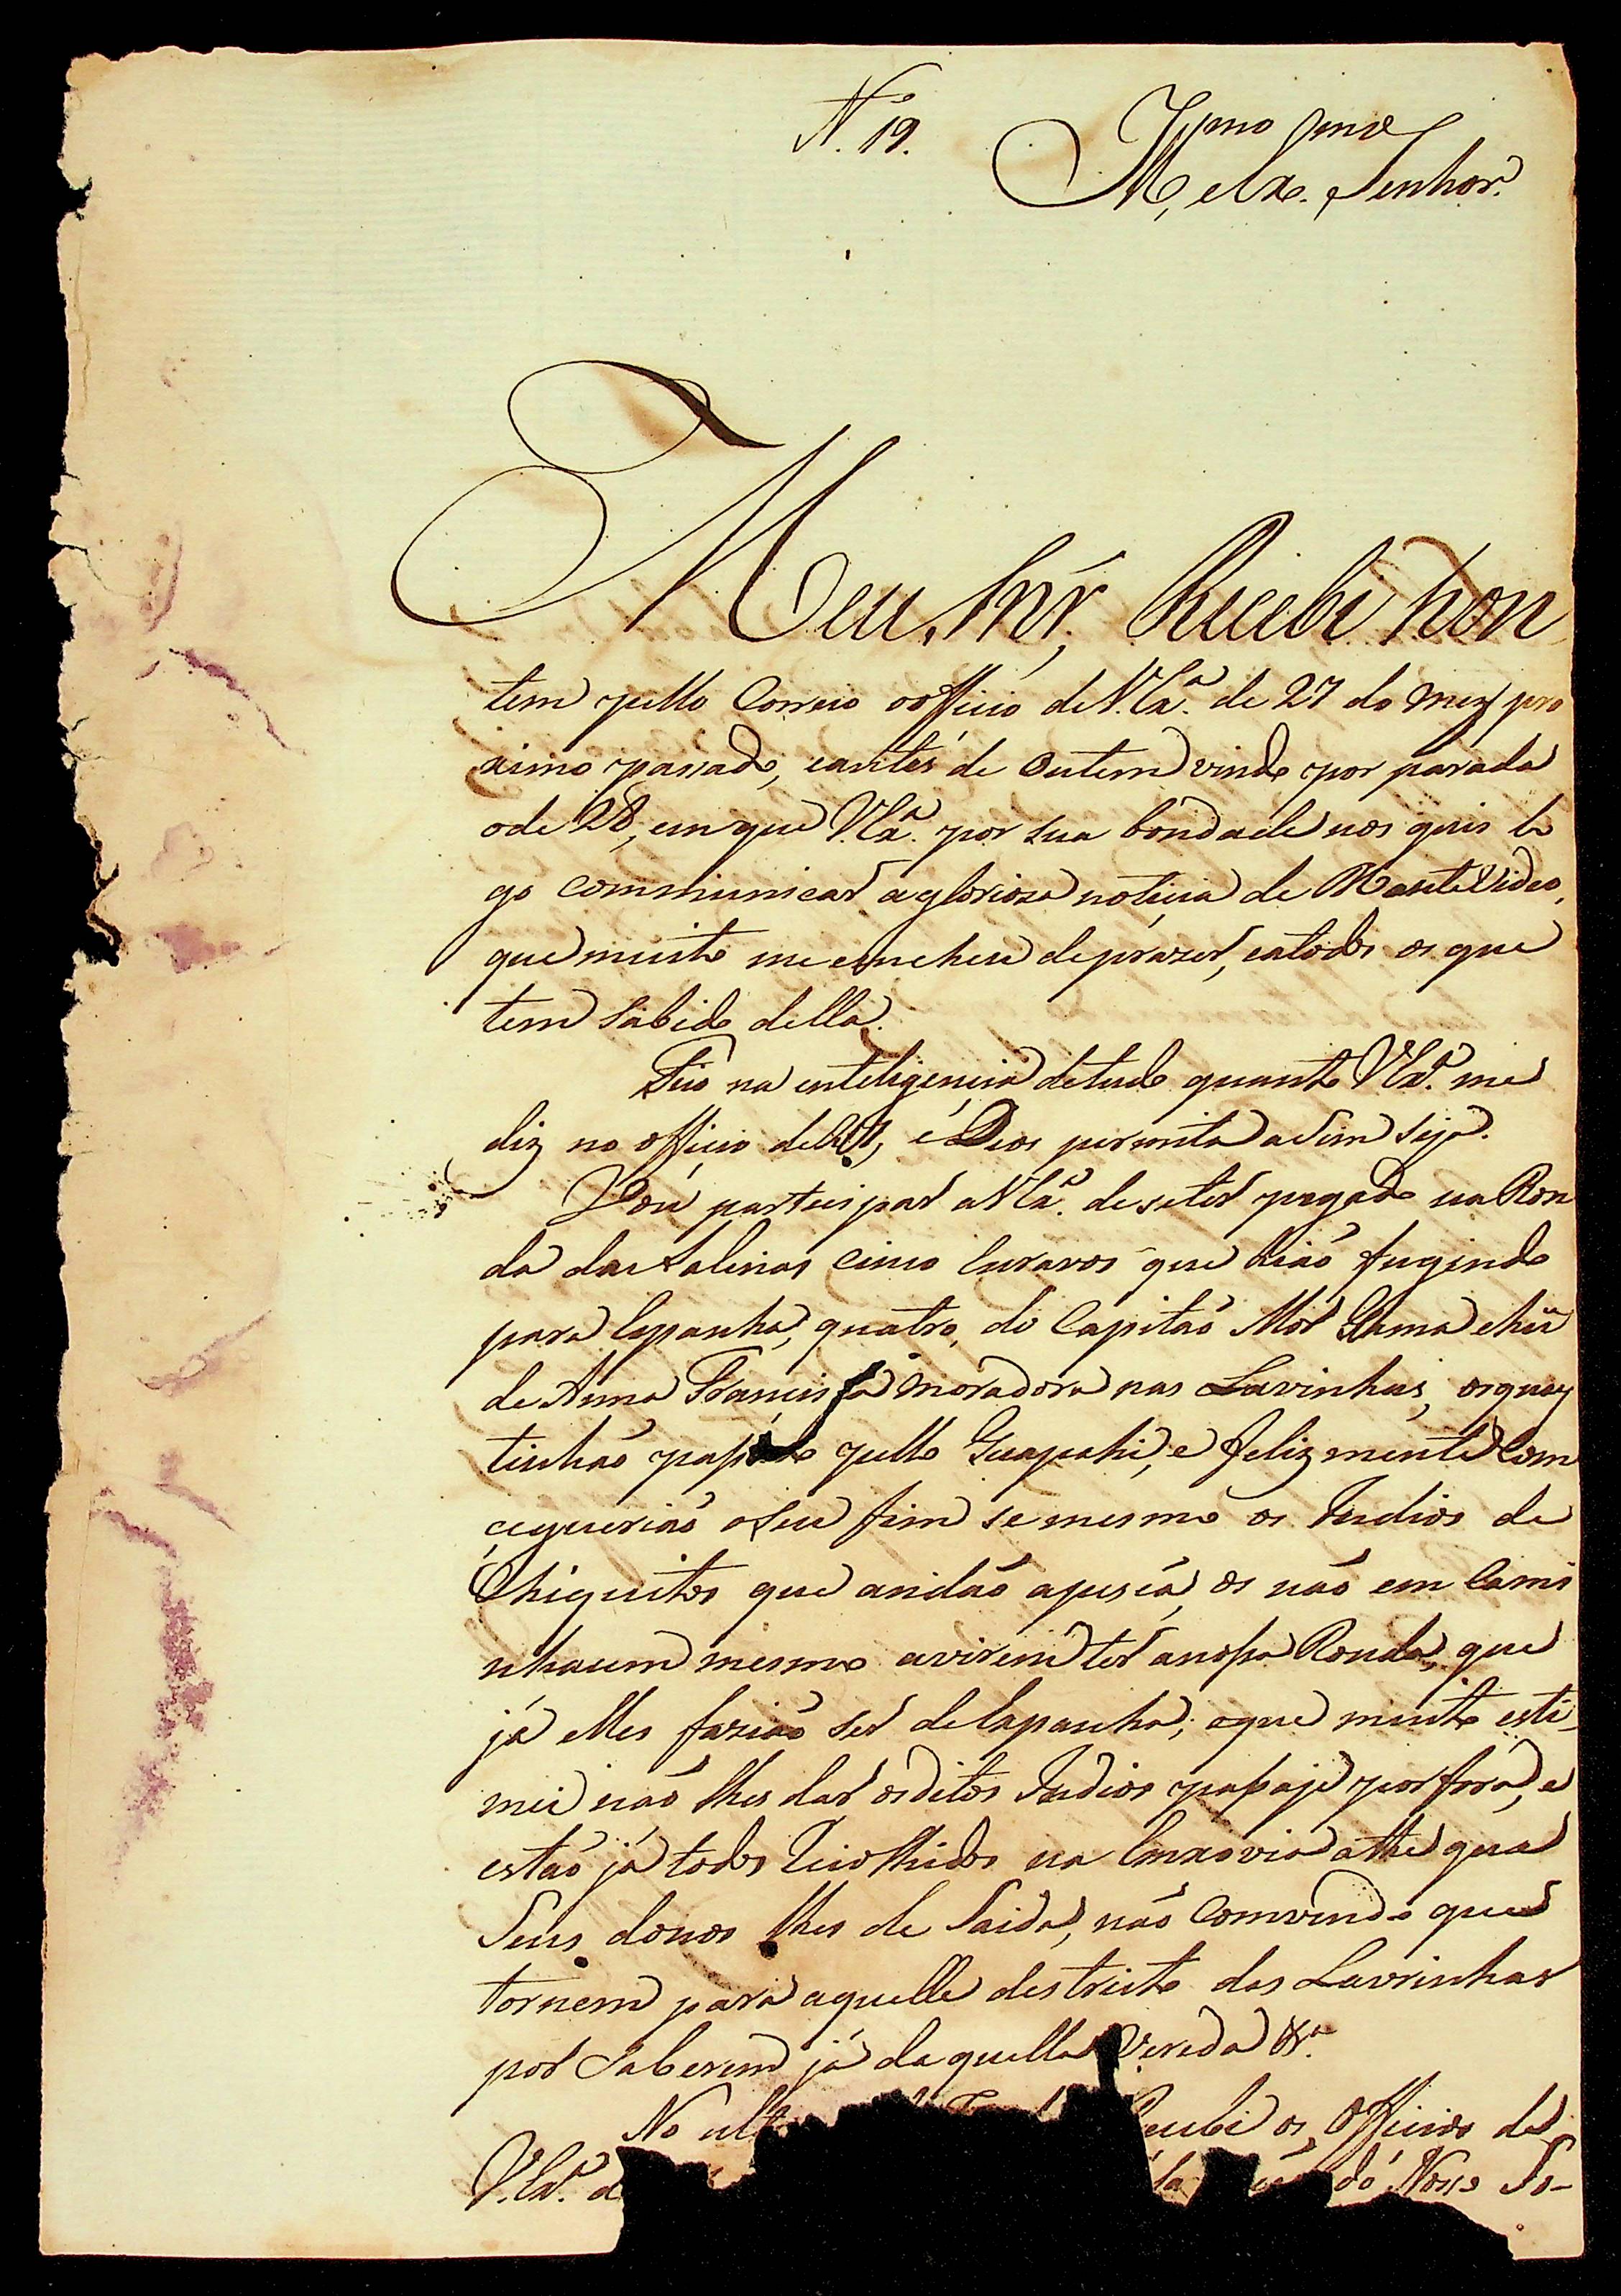 N.º 19.
Illmo Exmo
M, e Ex. Senhor.
Meu Snr, Recebi hon
tem pello Correio o officio de V. Exª. de 27 do mez pro
ximo passado, e antes de ontem vindo por parada
o de 28, em que V. Exª. por sua bondade nos quis lo
go communicar a glorioza noticia de Monte Video,
que muito me encheu de prazer, e a todos os que
tem sabido della.
Fico na inteligencia de tudo quanto V. Exª. me
diz no officio de 27, e Deos permita asim seja.
Vou participar a V. Exª. de se ter pegado na Ron
da das Salinas cinco escravos que hião fugindo
para Espanha, quatro do Capitão Mór Gama e hũ
de Anna Francisca moradora nas Lavrinhas, os quaes
tinhão passado pello Guapahi, e felizmente com
ceguerião o seu fim se mesmo os Indios de
Chiquitos que andão a pus cá, os não em cami
nhacem mesmo a virem ter a nossa Ronda, que
já elles fazião ser de Espanha; o que muito esti-
mei não lhes dar os ditos Indios passaje por fora, e
estão já todos recolhidos na Enxovia athe que
Seus donos lhes de Saida, não Comvindo que
tornem para aquelle destricto das Lavrinhas
por Saberem já daquella vereda &ª.
No ult Recebi os Officios de
V. Exª. d do Nosso So-